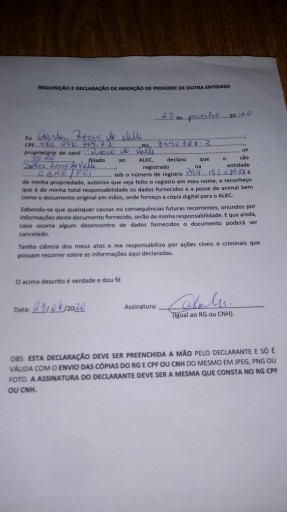 REQUISIÇÃO E DECLARAÇÃO DE INSERÇÃO DE PEDIGREE DE OUTRA ENTIDADE
de junho
Eu
CPF RG
proprietário do canil
filiado ao ALKC, declaro que o cão
registrado na entidade
sob o número de registro
de minha propriedade, autorizo que seja feito o registro em meu nome, e reconheço
que é de minha total responsabilidade os dados fornecidos e a posse do animal bem
como o documento original em mãos, onde forneço a cópia digital para o ALKC.
Sabendo-se que quaisquer causas ou consequências futuras recorrentes, oriundos por
informações deste documento fornecido, serão de minha responsabilidade. E que ainda,
caso ocorra algum desencontro de dados fornecidos o documento poderá ser
cancelado.
Tenho ciência dos meus atos e me responsabilizo por ações cíveis e criminais que
possam recorrer sobre as informações aqui declaradas.
O acima descrito é verdade e dou fé
Data: Assinatura:
(Igual ao RG ou CNH).
OBS: ESTA DECLARAÇÃO DEVE SER PREENCHIDA A MÃO PELO DECLARANTE E SÓ É
VÁLIDA COM O ENVIO DAS CÓPIAS DO RG E CPF OU CNH DO MESMO EM JPEG, PNG OU
FOTO. A ASSINATURA DO DECLARANTE DEVE SER A MESMA QUE CONSTA NO RG CPF
OU CNH.